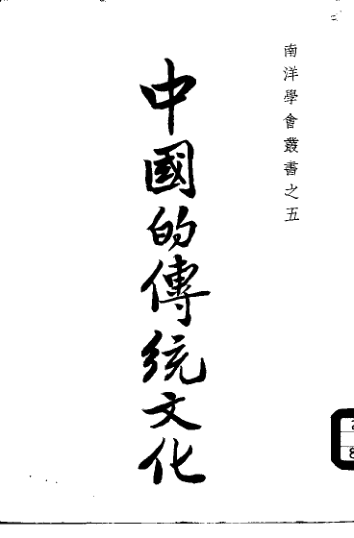 南洋學會叢書之五
中國的傳统文化